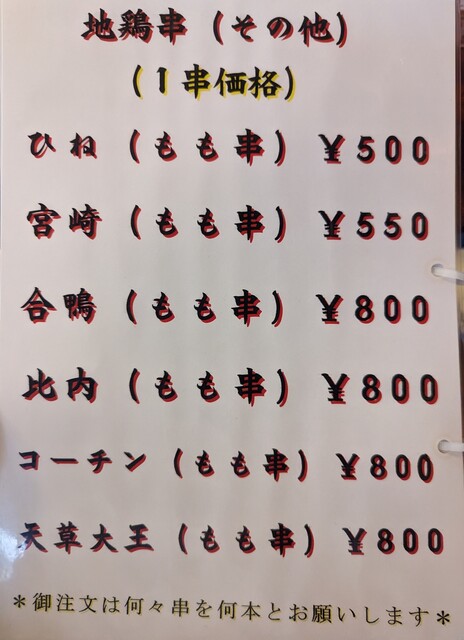 地鶏串（その他）
（１串価格）
ひね（もも串） ￥５００
宮崎（もも串） ￥５５０
合鴨（もも串） ￥８００
比内（もも串） ￥８００
コーチン（もも串） ￥８００
天草大王（もも串） ￥８００
＊御注文は何々串を何本とお願いします＊